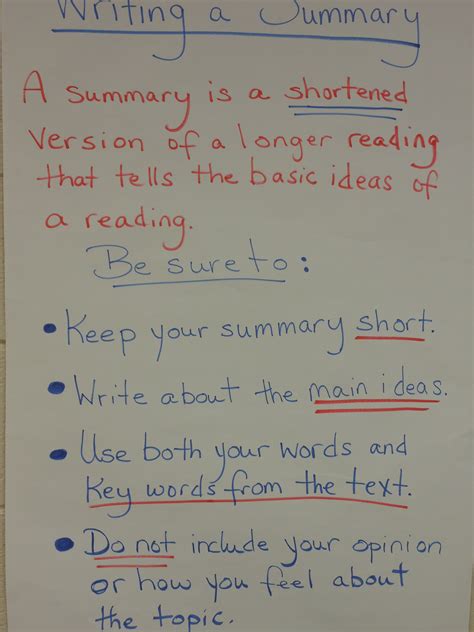 Writing a Summary
A summary is a shortened
version of a longer reading
that tells the basic ideas of
a reading.
Be sure to:
• Keep your summary short.
• Write about the main ideas.
• Use both your words and
Key words from the text.
• Do not include your opinion
or how you feel about
the topic.